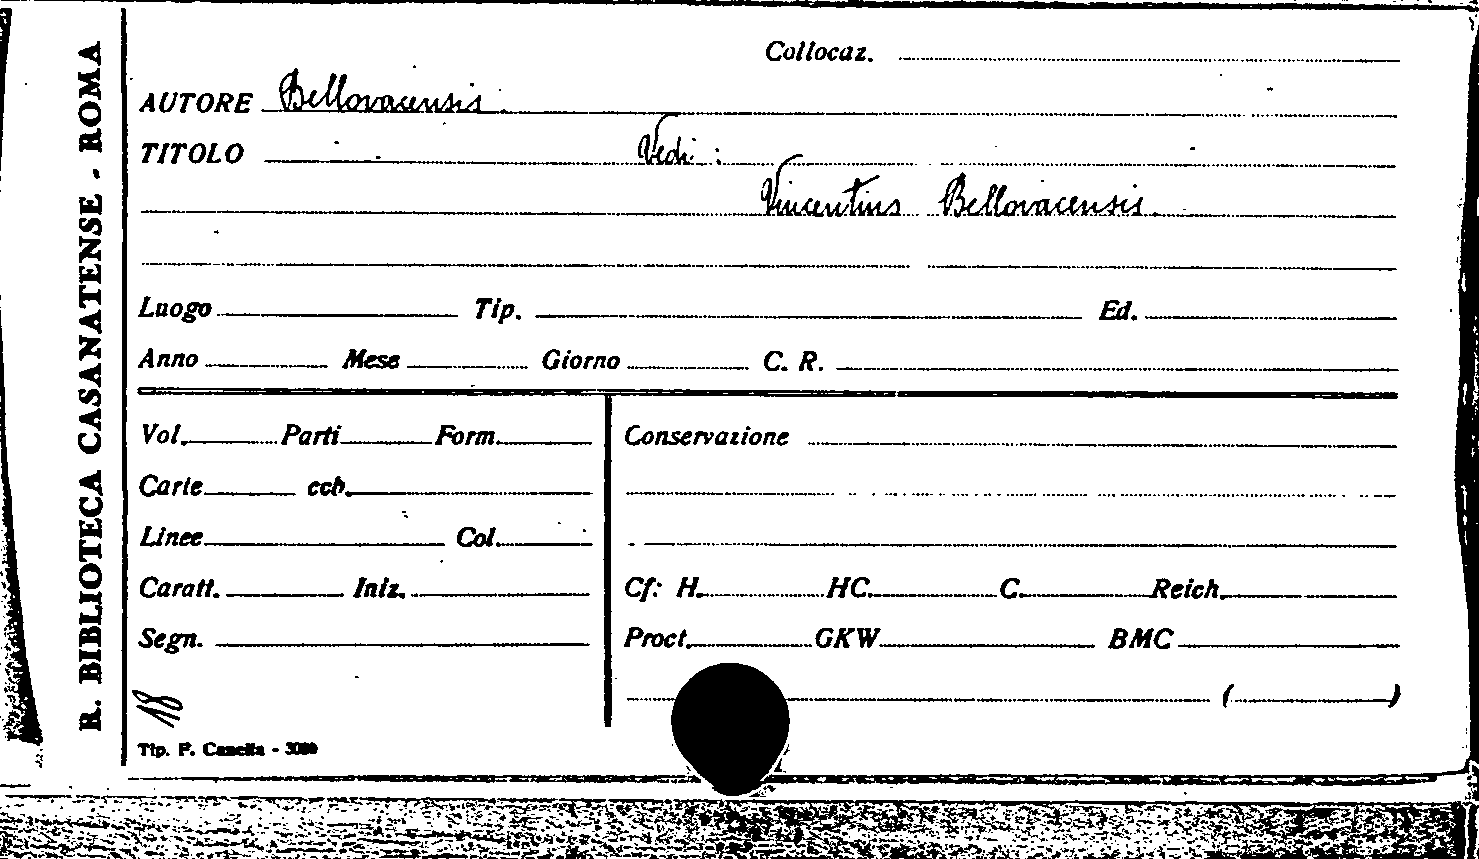 R. BIBLIOTECA CASANATENSE - ROMA
Collocaz.
AUTORE Bellovacensis.
TITOLO Vedi :
Vincentius Bellovacensis.
Luogo Tip. Ed.
Anno Mese Giorno C. R.
Vol. Parti Form.
Carte ccb.
Linee Col.
Caratt. Iniz.
Segn.
Conservazione
Cf: H. HC. C. Reich.
Proct. GKW BMC
( )
Tip. F. Canella -